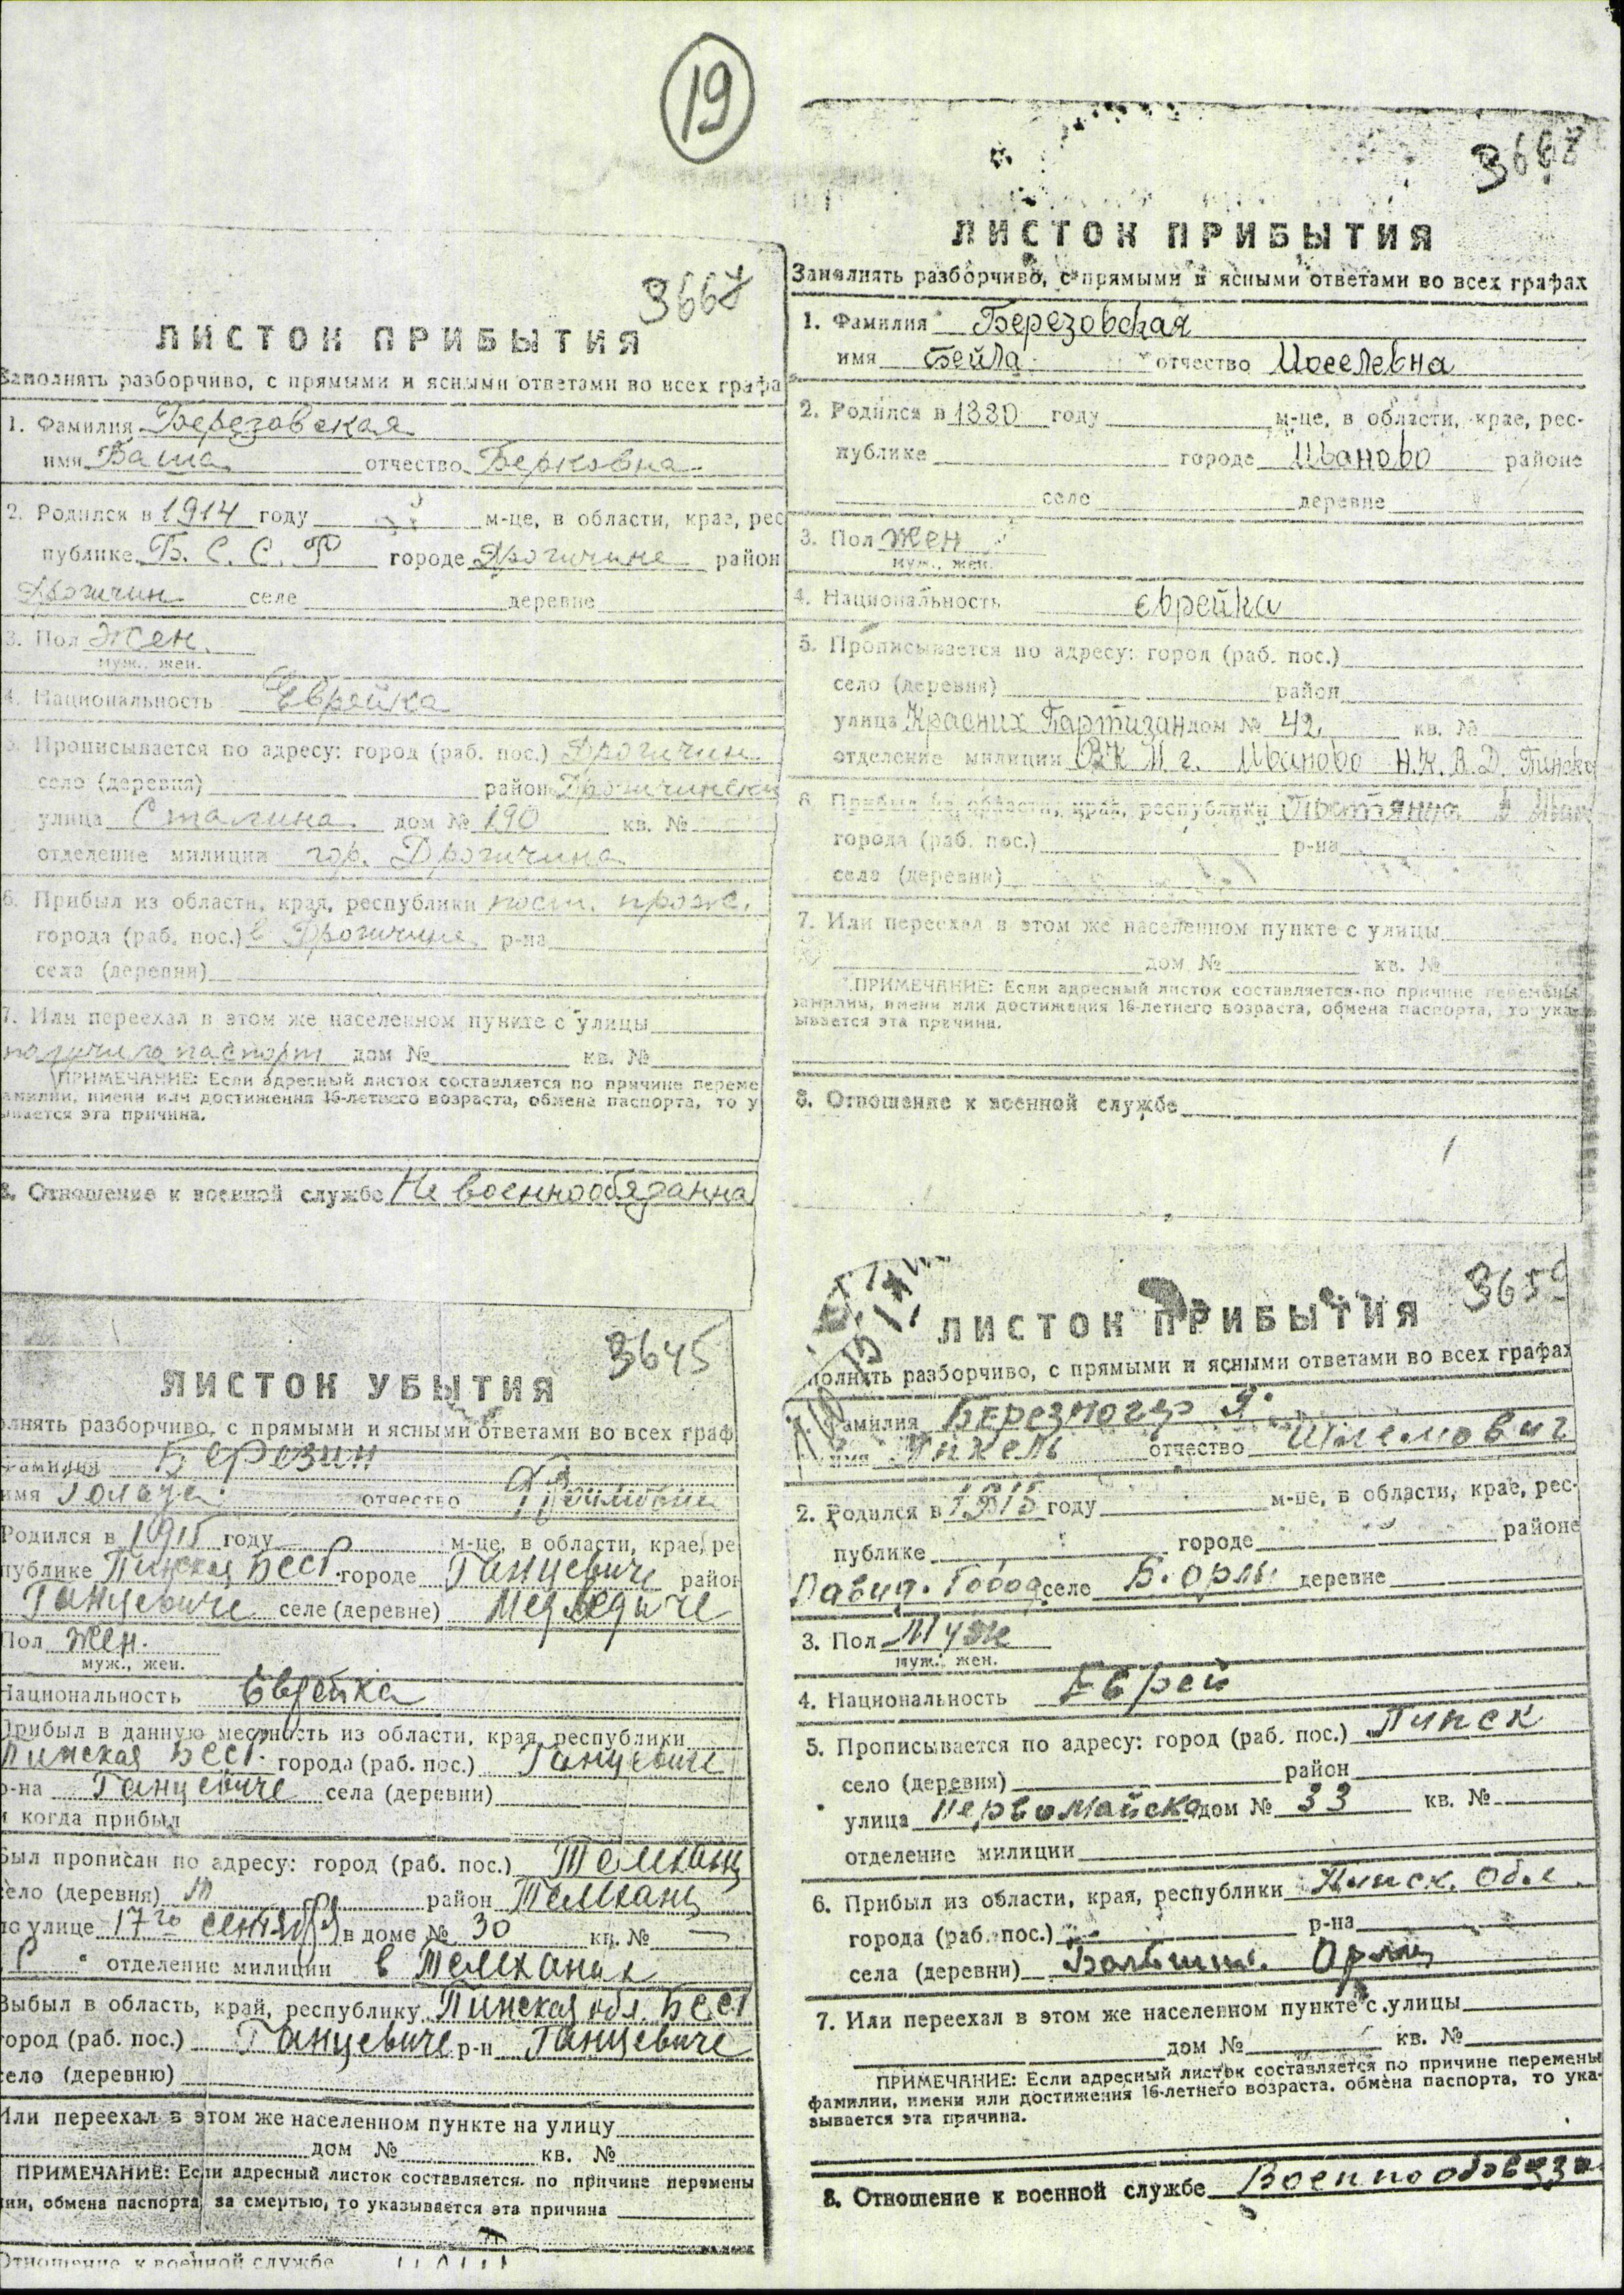 19
3667
ЛИСТОК ПРИБЫТИЯ
Заполнять разборчиво, с прямыми и ясными ответами во всех графа
1. Фамилия Березовская
имя Баша отчество Берковна
2. Родился в 1914 году м-це, в области, крае, рес
публике Б. С. С. Р городе Дрогичине район
Дрогичин селе деревне
3. Пол Жен.
муж., жен.
4. Национальность Еврейка
5. Прописывается по адресу: город (раб. пос.) Дрогичин
село (деревня) район Дрогичински
улица Сталина дом № 190 кв. №
отделение милиции гор. Дрогичина
6. Прибыл из области, края, республики пост. прож.
города (раб. пос.) в Дрогичине р-на
села (деревни)
7. Или переехал в этом же населенном пункте с улицы
получила паспорт дом № кв. №
ПРИМЕЧАНИЕ: Если адресный листок составляется по причине переме
амилии, имени или достижения 16-летнего возраста, обмена паспорта, то у
ывается эта причина.
8. Отношение к военной службе Не военнообязанна
ЛИСТОК ПРИБЫТИЯ
Заполнять разборчиво, с прямыми и ясными ответами во всех графах
1. Фамилия Березовская
имя Бейла отчество Иоселевна
2. Родился в 1880 году м-це, в области, крае, рес-
публике городе Иваново районе
селе деревне
3. Пол Жен
муж., жен.
4. Национальность еврейка
5. Прописывается по адресу: город (раб. пос.)
село (деревня) район
улица Красних Партизан дом № 42 кв. №
отделение милиции г. Иваново Н.К.В.Д. Пинско
6. Прибыл из области, края, республики
города (раб. пос.) р-на
села (деревни)
7. Или переехал в этом же населенном пункте с улицы
дом № кв. №
ПРИМЕЧАНИЕ: Если адресный листок составляется по причине перемены
фамилии, имени или достижения 16-летнего возраста, обмена паспорта, то ука-
зывается эта причина.
8. Отношение к военной службе
3645
ЛИСТОК УБЫТИЯ
олнять разборчиво, с прямыми и ясными ответами во всех граф
Фамилия Березин
имя отчество
Родился в 1915 году м-це, в области, крае, ре
публике Пинская БССР городе Ганцевиче район
Ганцевиче селе (деревне) Медведиче
Пол Жен.
муж., жен.
Национальность Еврейка
Прибыл в данную местность из области, края, республики
Пинская БССР города (раб. пос.) Ганцевиче
р-на Ганцевиче села (деревни)
и когда прибыл
Был прописан по адресу: город (раб. пос.) Телехани
село (деревня) район Телехани
по улице 17го сентября в доме № 30 кв. № —
отделение милиции в Телеханах
Выбыл в область, край, республику Пинская обл. БССР
город (раб. пос.) Ганцевиче р-н Ганцевиче
село (деревню)
Или переехал в этом же населенном пункте на улицу
дом № кв. №
ПРИМЕЧАНИЕ: Если адресный листок составляется по причине перемены
лии, обмена паспорта, за смертью, то указывается эта причина
Отношение к военной службе
3659
ЛИСТОК ПРИБЫТИЯ
полнять разборчиво, с прямыми и ясными ответами во всех графах
Фамилия Березногер Я.
имя Инхель отчество Шлемович
2. Родился в 1915 году м-це, в области, крае, рес-
публике городе районе
Давид. Город селе Б. Орлы деревне
3. Пол Муж
муж., жен.
4. Национальность Еврей
5. Прописывается по адресу: город (раб. пос.) Пинск
село (деревня) район
улица Первомайска дом № 33 кв. №
отделение милиции
6. Прибыл из области, края, республики Пинск. Обл.
города (раб. пос.) р-на
села (деревни) Больши. Орлы
7. Или переехал в этом же населенном пункте с улицы
дом № кв. №
ПРИМЕЧАНИЕ: Если адресный листок составляется по причине перемены
фамилии, имени или достижения 16-летнего возраста, обмена паспорта, то ука-
зывается эта причина.
8. Отношение к военной службе Военнообязан